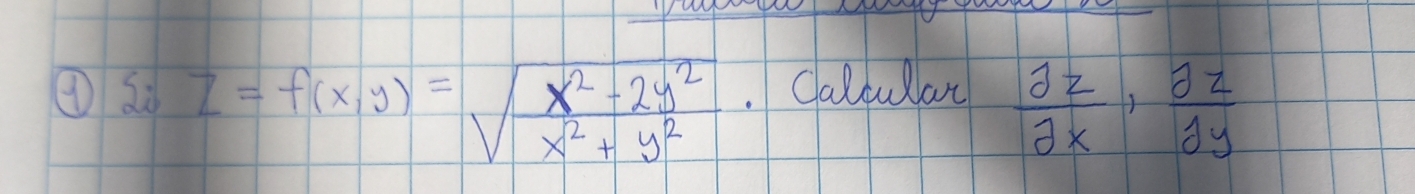 ① Si Z = f(x,y) = √((x² - 2y²)/(x² + y²)) . Calcular ∂z/∂x , ∂z/∂y